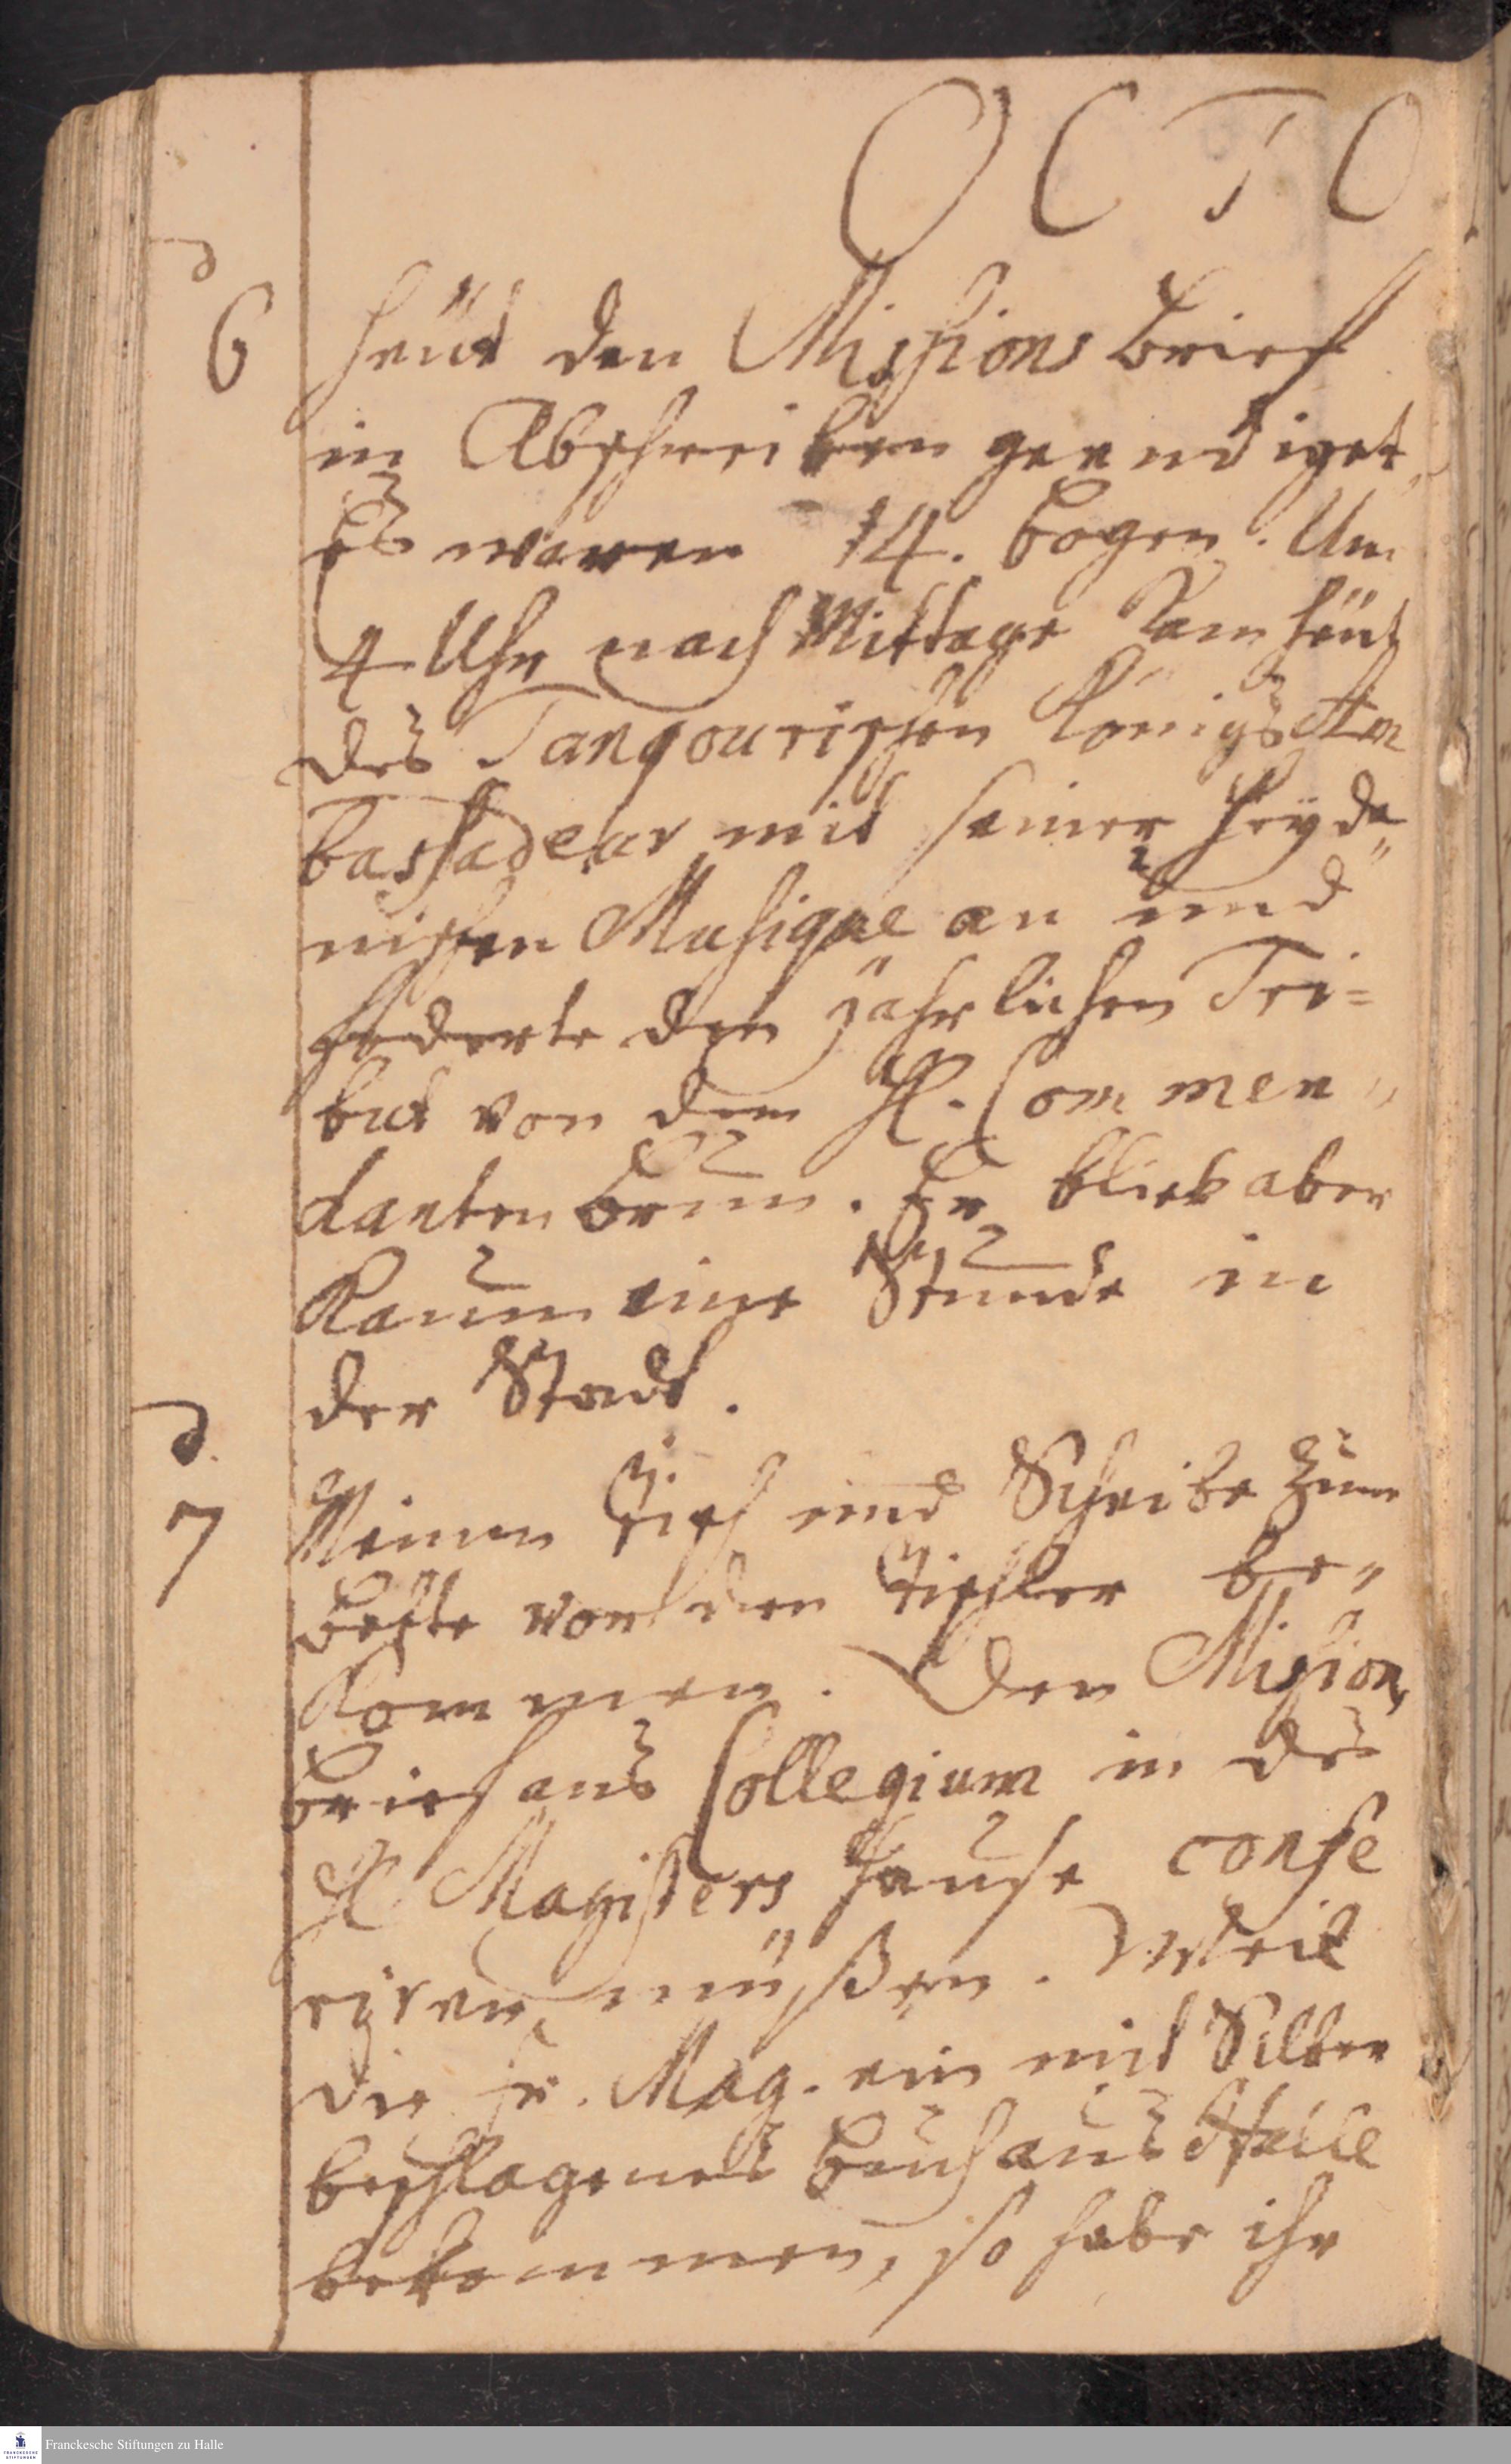 OCTO
d
6 heüt den Missions brieff
in Abschreiben geendiget,
Es waren 14. bogen. Um
4 Uhr nach Mittage kam heüt
des Tangourischen Königs Am
bassadeur mit seiner heyde„
nischen Musique an und
foderte den jährlichen Tri=
but von dem H. Commen„
danten Brun. Er blieb aber
kaum eine Stunde in
der Stadt.
d.
7 Meinen Tisch und Scheibe zum
Bette von den Tischler be„
kommen. Den Mission,
brief ans Collegium in des
H Magisters Hause confe
riren müßen. Weil
die Fr. Mag. ein mit Silber
beschlagenes buch aus Halle
bekommen, so habe ihr
Franckesche Stiftungen zu Halle